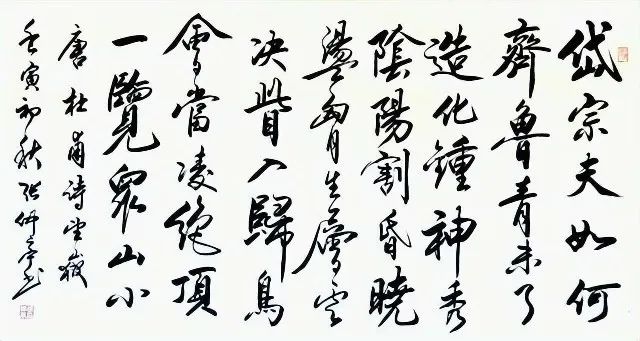 岱宗夫如何
齊魯青未了
造化鍾神秀
陰陽割昏曉
盪胸生層雲
决眥入歸鳥
會當凌絶頂
一覽眾山小
唐杜甫詩望嶽
壬寅初秋张仲亭书